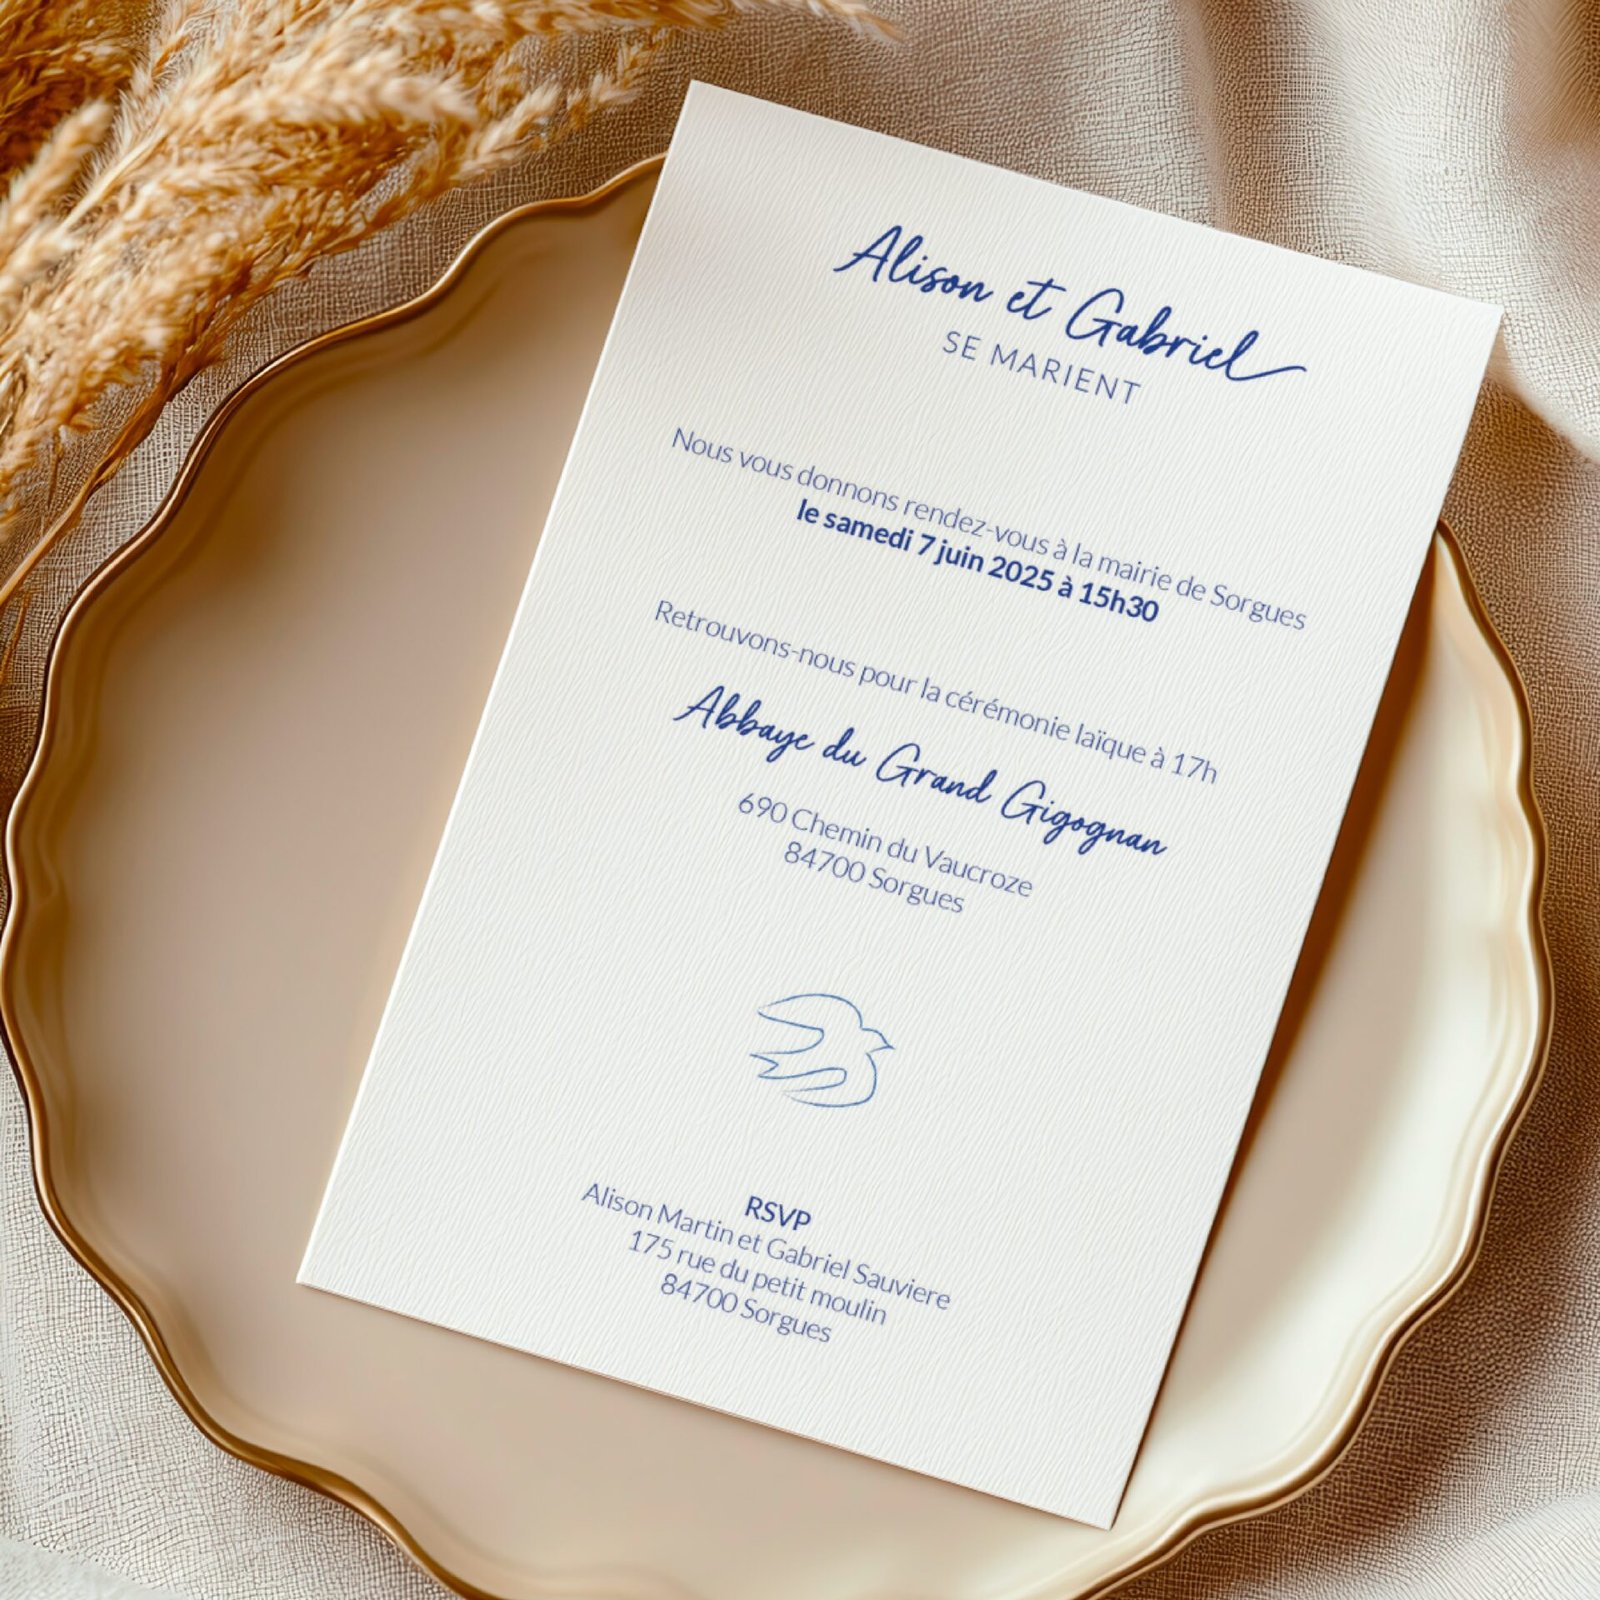 Alison et Gabriel
SE MARIENT
Nous vous donnons rendez-vous à la mairie de Sorgues
le samedi 7 juin 2025 à 15h30
Retrouvons-nous pour la cérémonie laïque à 17h
Abbaye du Grand Gigognan
690 Chemin du Vaucroze
84700 Sorgues
RSVP
Alison Martin et Gabriel Sauviere
175 rue du petit moulin
84700 Sorgues